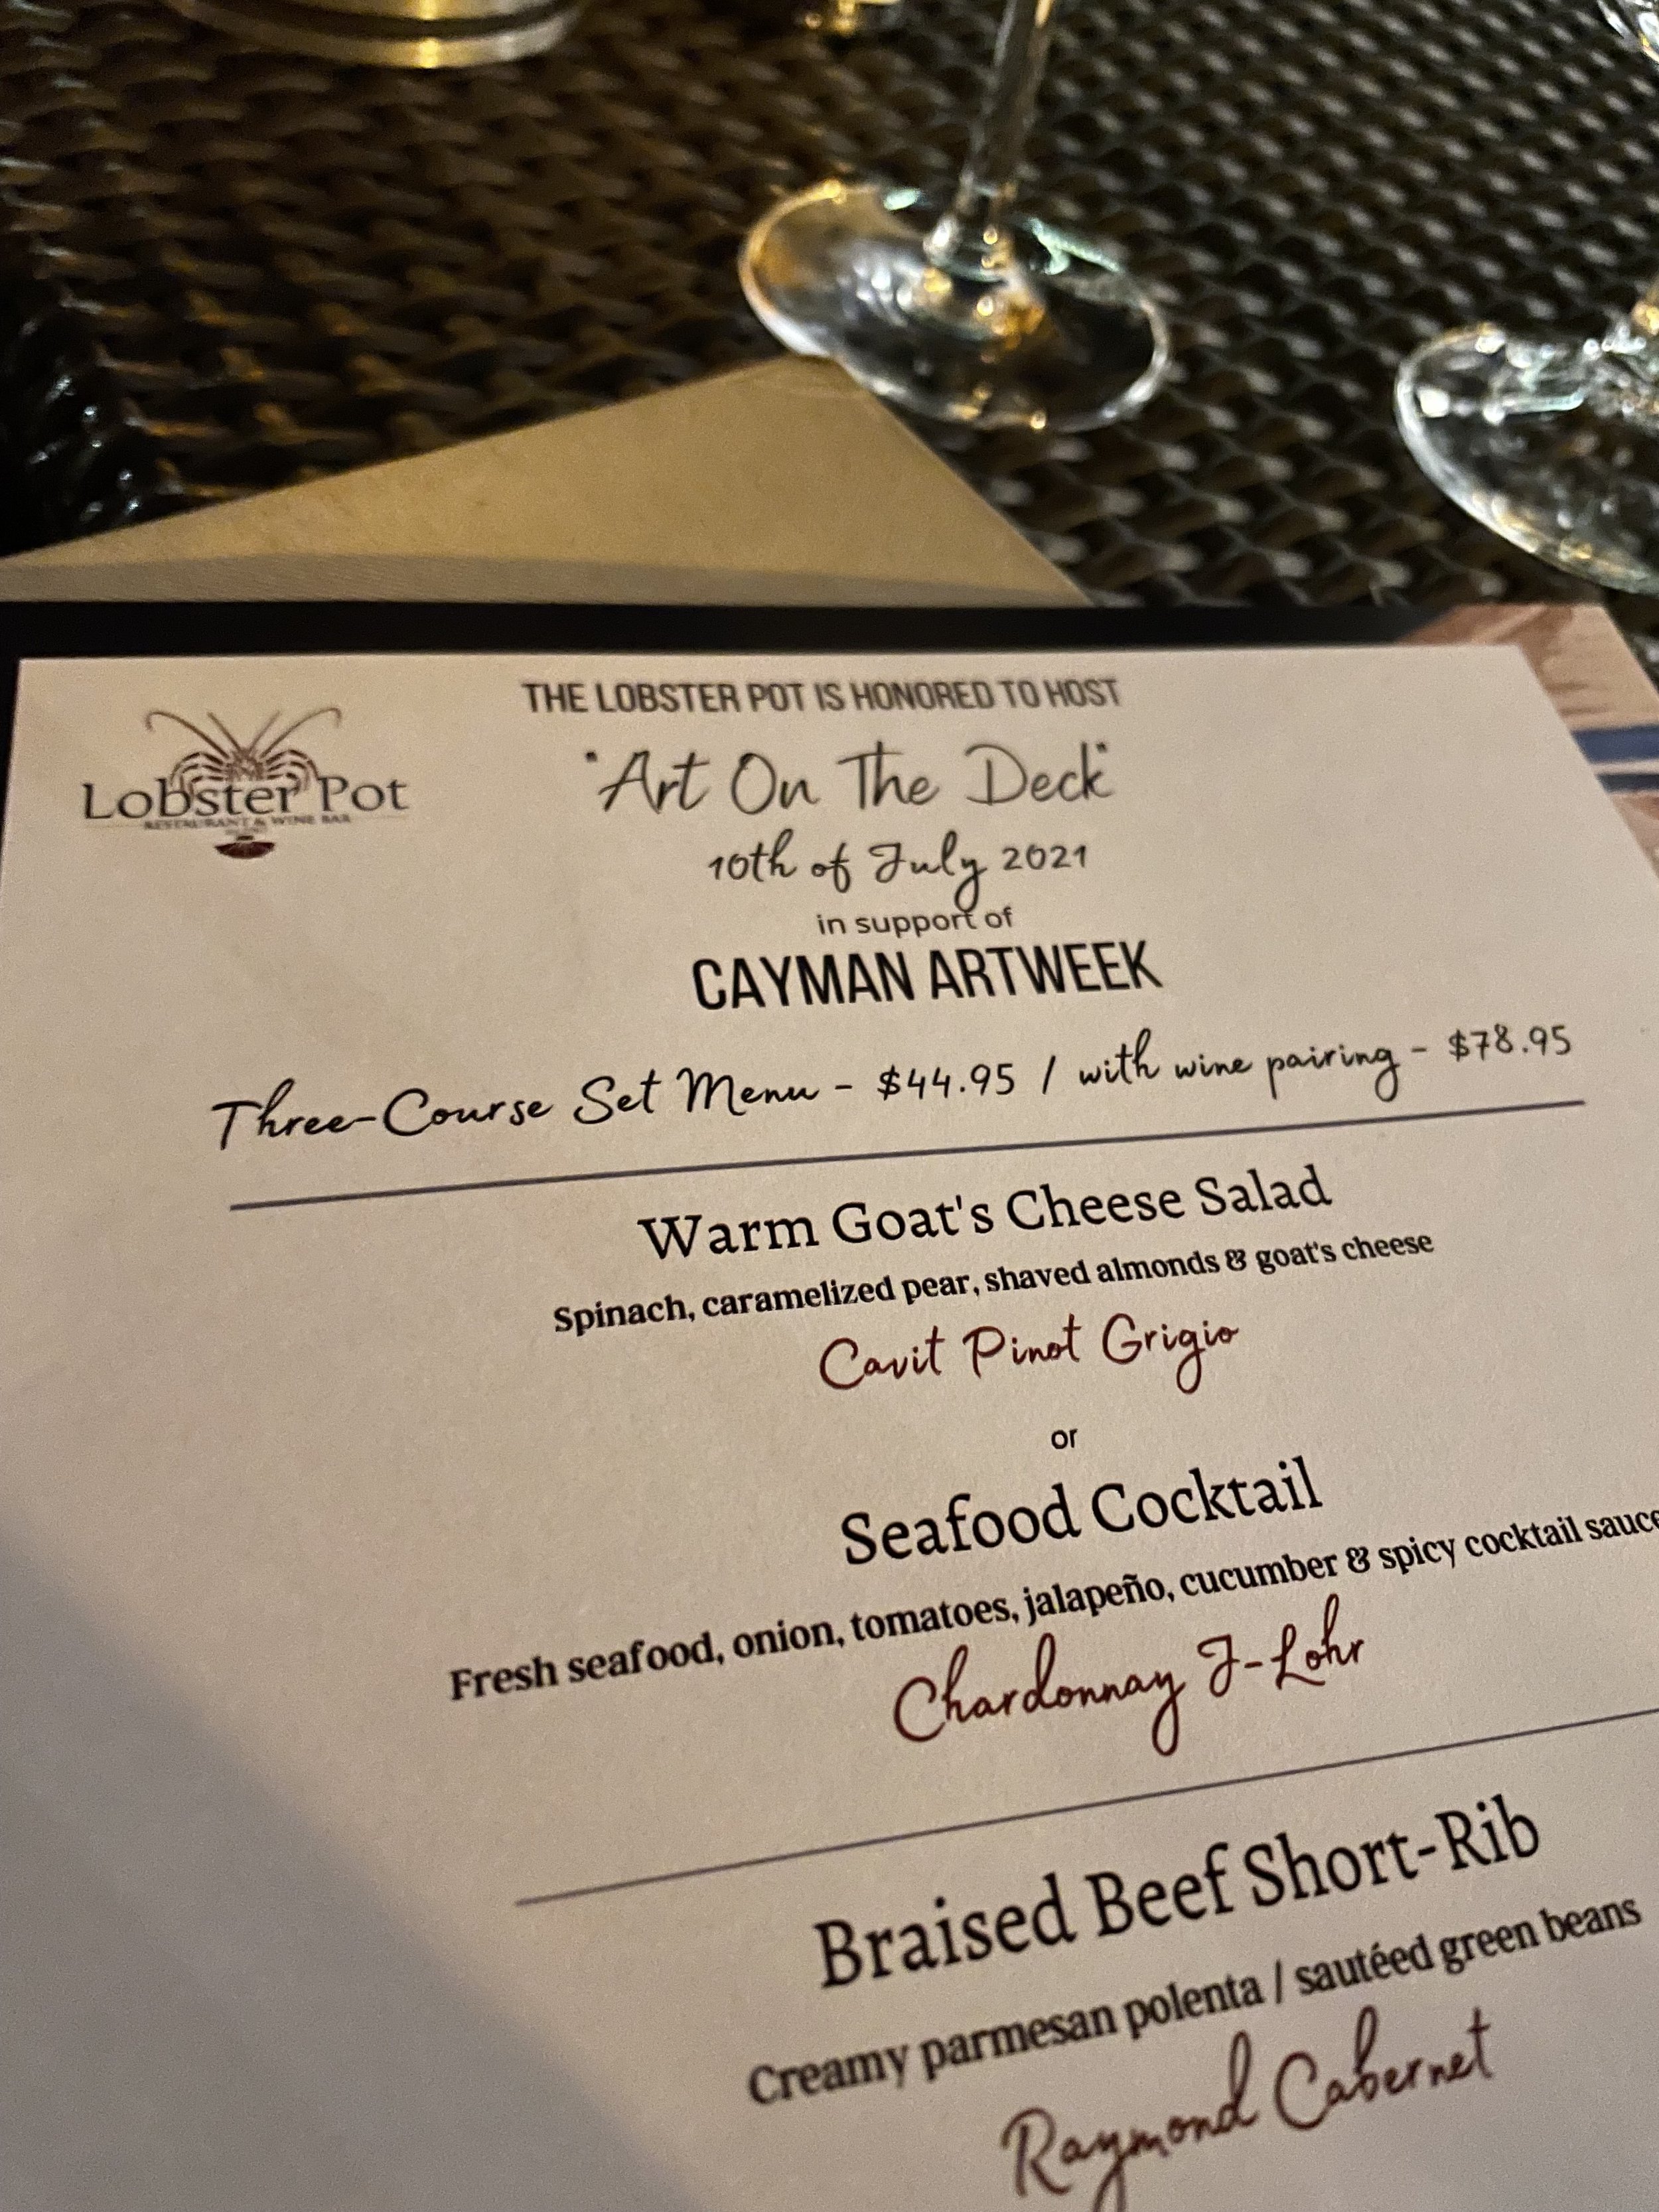 THE LOBSTER POT IS HONORED TO HOST
Lobster Pot
RESTAURANT & WINE BAR
"Art On The Deck"
10th of July 2021
in support of
CAYMAN ARTWEEK
Three-Course Set Menu - $44.95 / with wine pairing - $78.95
Warm Goat's Cheese Salad
Spinach, caramelized pear, shaved almonds & goat's cheese
Cavit Pinot Grigio
or
Seafood Cocktail
Fresh seafood, onion, tomatoes, jalapeño, cucumber & spicy cocktail sauce
Chardonnay J-Lohr
Braised Beef Short-Rib
Creamy parmesan polenta / sautéed green beans
Raymond Cabernet